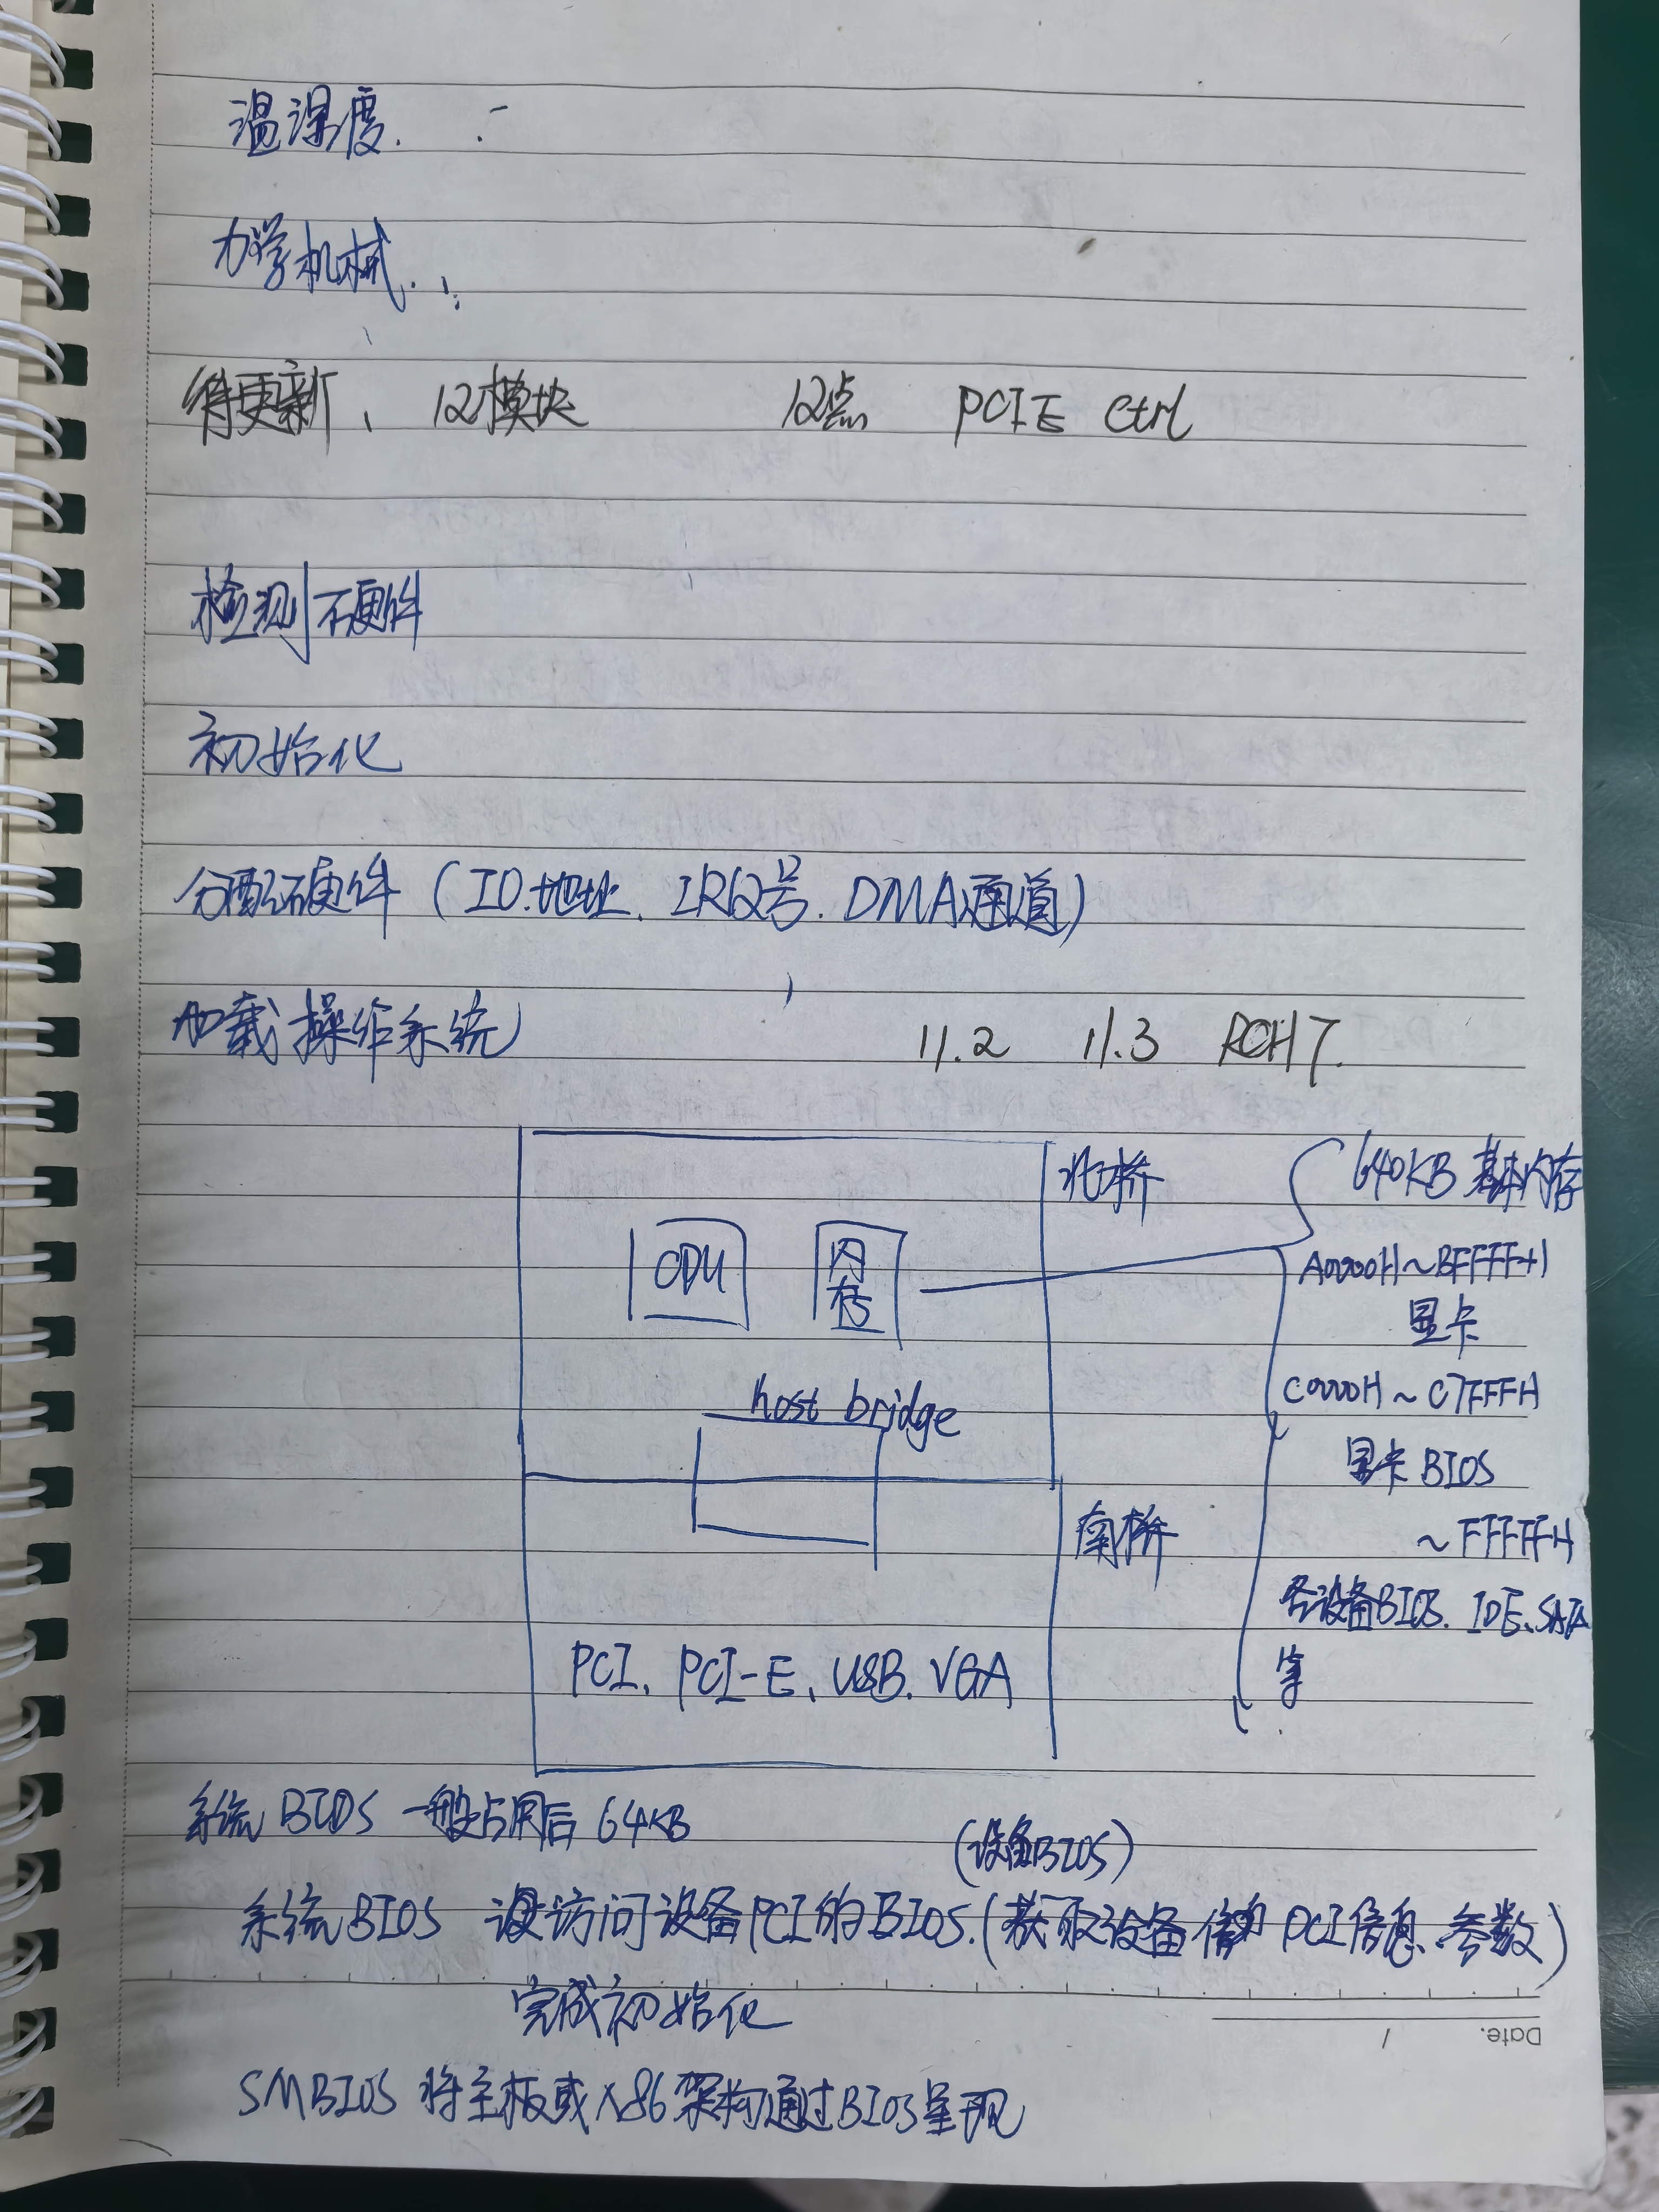 温湿度.
力学机械.
待更新、 12模块 12点 PCIE Ctrl
检测硬件
初始化
分配硬件（IO.地址、IRQ号.DMA通道）
加载操作系统
11.2 11.3 PCH7.
北桥
CPU 内存
host bridge
南桥
PCI、PCI-E、USB.VGA
640KB 基本内存
A0000H～BFFFFH
显卡
C0000H～C7FFFH
显卡BIOS
～FFFFFH
各设备BIOS. IDE、SATA
等
系统BIOS 一般占用后64KB
（设备BIOS）
系统BIOS 访问设备PCI的BIOS.（获取设备 PCI信息、参数）
完成初始化
Date. /
SMBIOS 将主板或X86架构通过BIOS呈现